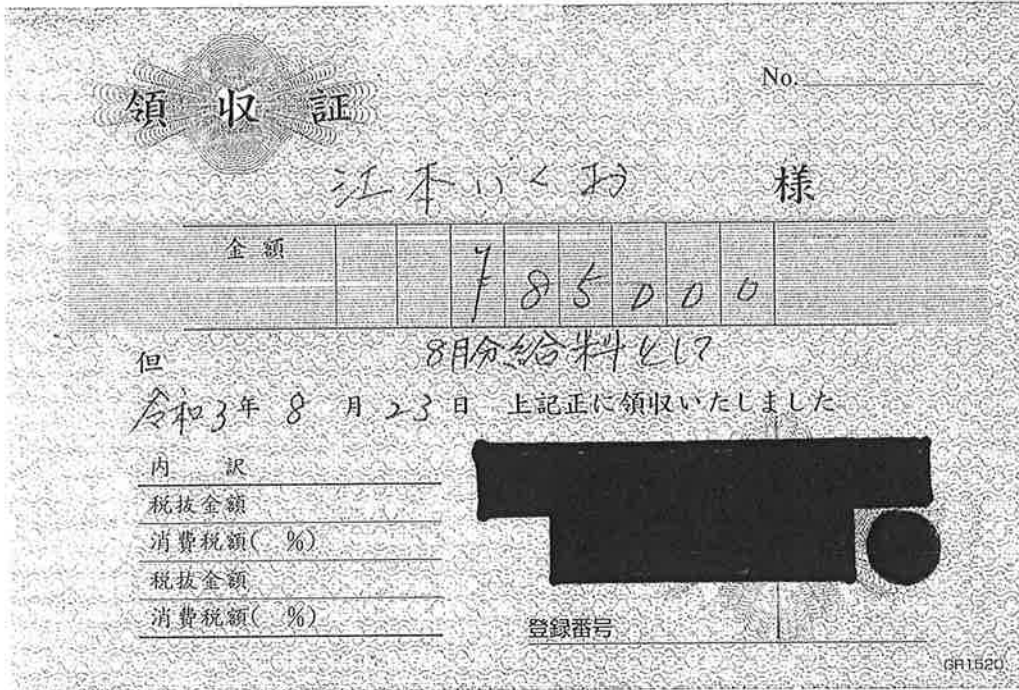 領収証
No.
江本いくお 様
金額 ¥85000
但 8月分給料として
令和3年8月23日 上記正に領収いたしました
内訳
税抜金額
消費税額( %)
税抜金額
消費税額( %)
登録番号
GR1520